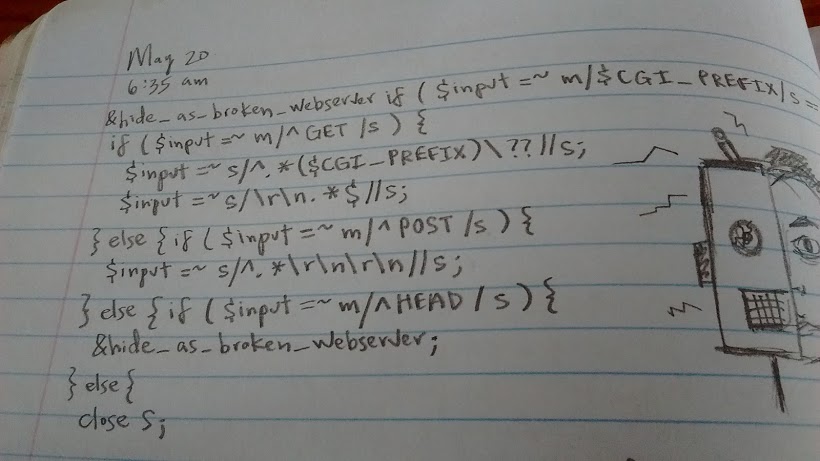 May 20
6:35 am
&hide_as_broken_webserver if ( $input =~ m/$CGI_PREFIX/s =
if ( $input =~ m/^ GET /s ) {
$input =~ s/^. *($CGI_PREFIX)\??//s;
$input =~ s/\r\n. *$//s;
} else { if ( $input =~ m/^ POST /s ) {
$input =~ s/^. *\r\n\r\n//s;
} else { if ( $input =~ m/^ HEAD / s ) {
&hide_as_broken_webserver;
} else {
close S;